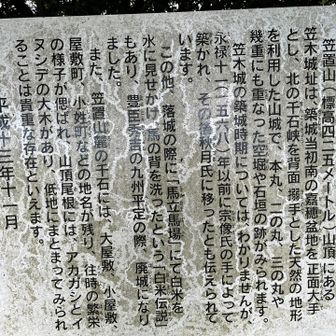 笠置山(標高四二五メートル)山頂にあ
笠木城址は、築城当初南の嘉穂盆地を正面大手
とし、北の千石峡を背面搦手とした天然の地形
を利用した山城で、本丸、二の丸、三の丸や
幾重にも重なった空堀や石垣の跡がみられます。
笠木城の築城時期については、わかりませんが、
永禄十一(一五六八)年以前に宗像氏の手によって
築かれ、その後秋月氏に移ったとも伝えられて
います。
この他、落城の際に「馬立馬場」にて白米を
水に見せかけ、馬の背を洗ったという「白米伝説」
もあり、豊臣秀吉の九州平定の際、廃城になり
ました。
また、笠置山麓の千石には、大屋敷、小屋敷、
屋敷町、小姓町などの地名が残り、往時の繁栄
の様子が偲ばれ、山頂尾根には、アカガシとイ
ヌシデの大木があり、低地にまとまってみられ
ることは貴重な存在といえます。
平成十三年十一月